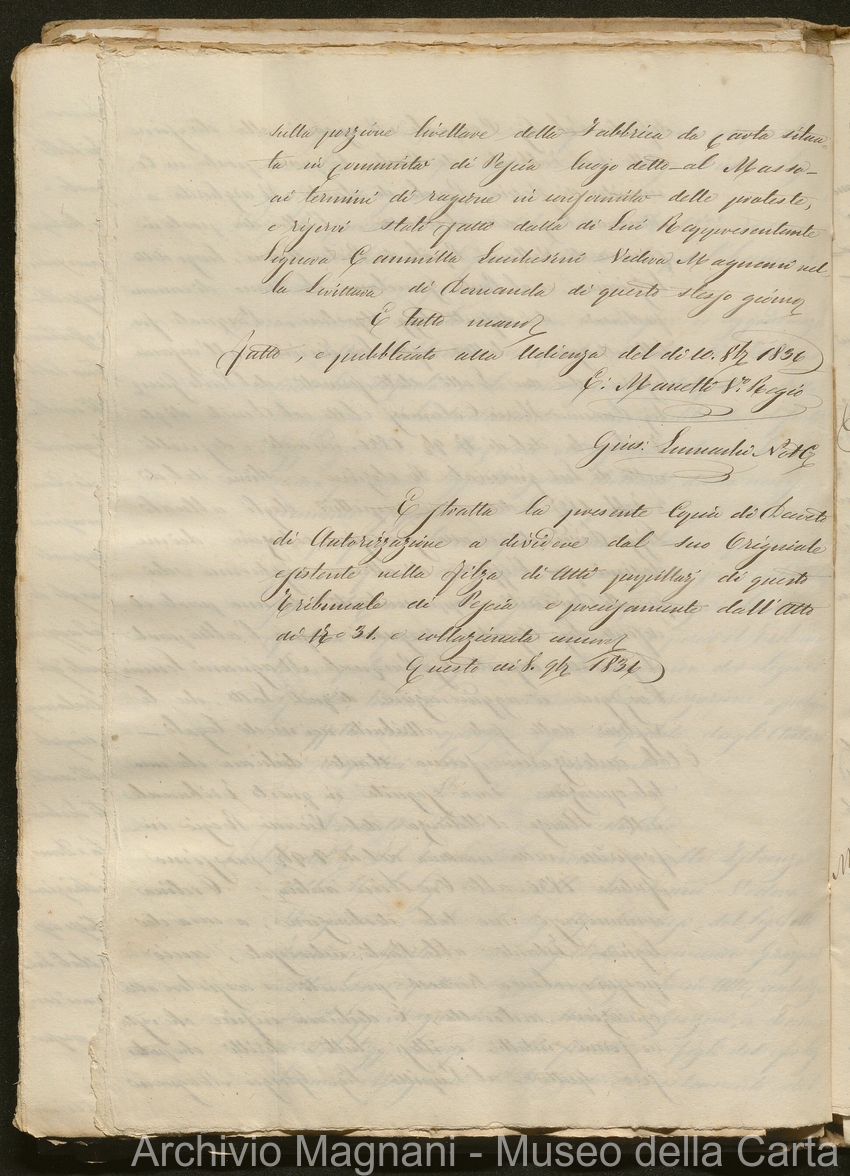 sulla porzione livellare della Fabbrica da Carta situa=
ta in Comunità di Pescia luogo detto al Masso
ai termini di ragione in conformità delle proteste,
e riservi stati fatti dalla di Lui Rappresentante
Signora Cammilla Luchesini Vedova Magnani nel
la Scrittura di Domanda di questo stesso giorno
E tutto
Fatto, e pubblicato alla Udienza del dì 10. 8bre 1836
C: Manetti V.º Regio
Gius:
E stratta la presente Copia di Decreto
di Autorizzazione a dividere dal suo Originale
esistente nella Filza di Atti pupillarj di questo
Tribunale di Pescia e precisamente dall'Atto
di e 31. e collazionata
Questo dì 8. 9bre 1836
Archivio Magnani - Museo della Carta